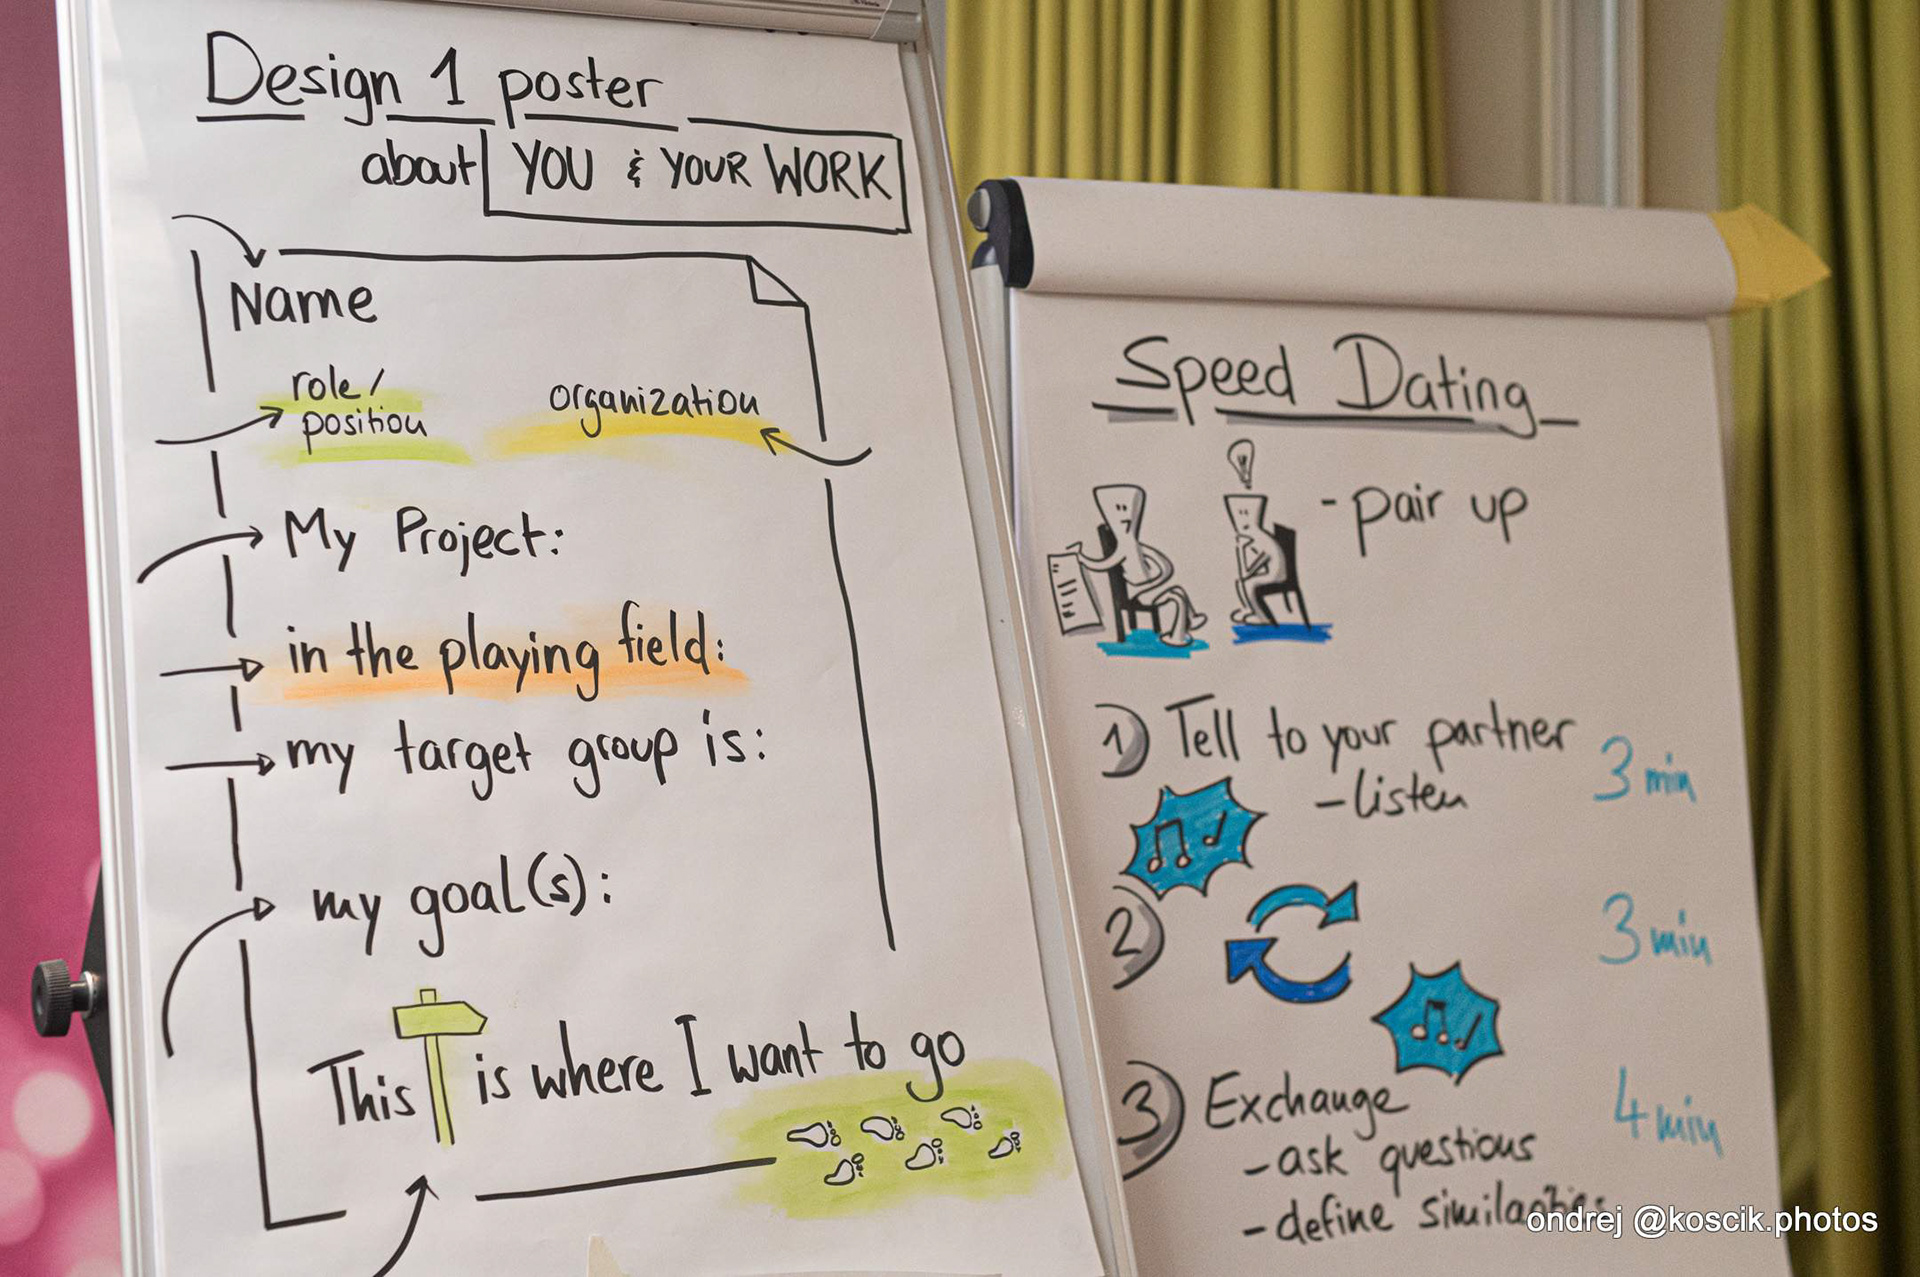 Design 1 poster
about YOU & YOUR WORK
Name
role/
position
organization
My Project:
in the playing field:
my target group is:
my goal(s):
This is where I want to go
Speed Dating
- pair up
1) Tell to your partner
- listen
3 min
2)
3 min
3) Exchange
4 min
- ask questions
- define
ondrej @koscik.photos